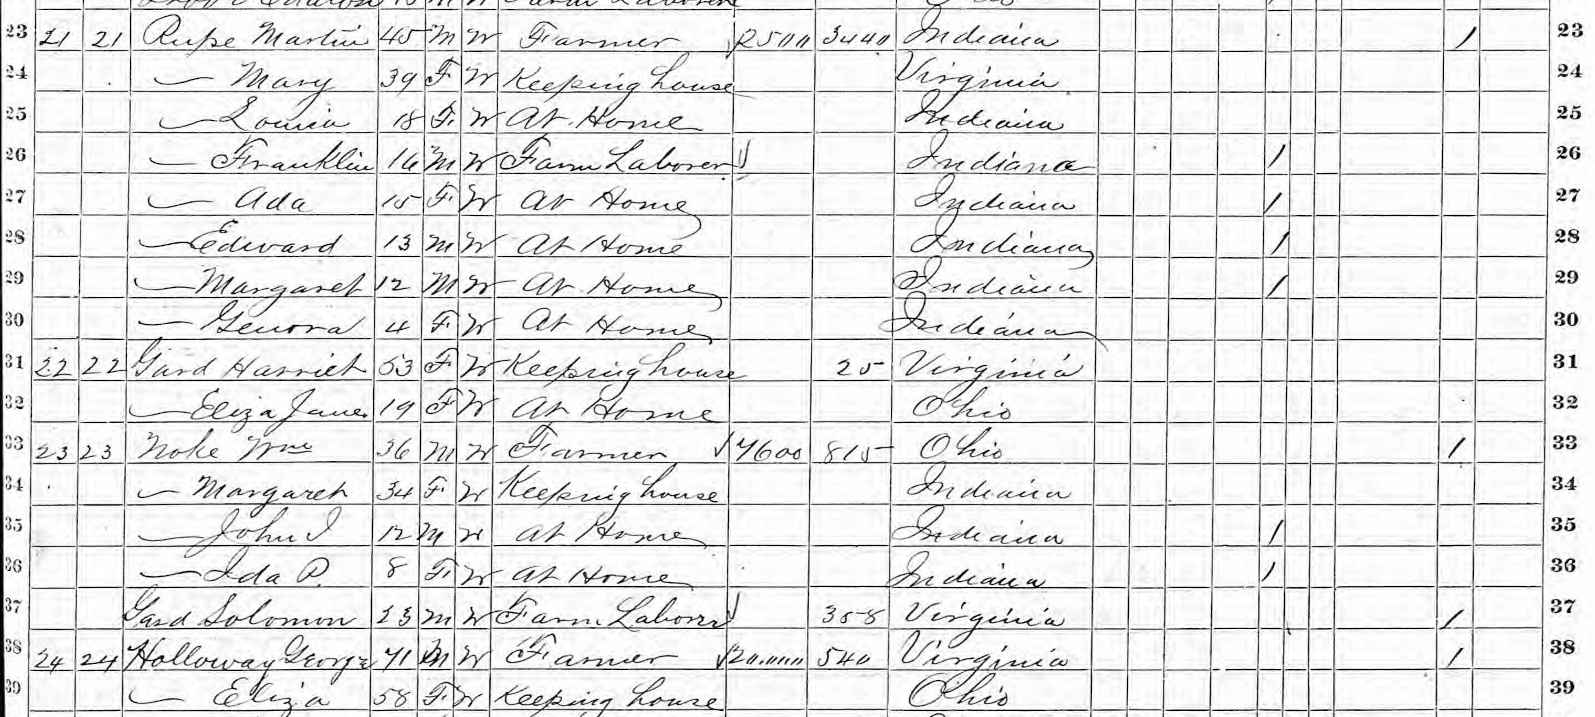 23 21 21 Rupe Martin 45 M W Farmer 3400 Indiana / 23
24 — Mary 39 F W Keeping house Virginia 24
25 — Louisa 18 F W At Home Indiana 25
26 — Franklin 16 M W Farm Laborer Indiana / 26
27 — Ada 15 F W At Home Indiana / 27
28 — Edward 13 M W At Home Indiana / 28
29 — Margaret 12 M W At Home Indiana / 29
30 — Genora 4 F W At Home Indiana 30
31 22 22 Gard Harriet 53 F W Keeping house 25 Virginia 31
32 — Eliza Jane 19 F W At Home Ohio 32
33 23 23 Noke Wm 36 M W Farmer 7600 815 Ohio / 33
34 — Margaret 34 F W Keeping house Indiana 34
35 — John I 12 M W At Home Indiana / 35
36 — Ida P. 8 F W At Home Indiana / 36
37 Gard Solomon 23 M W Farm Laborer 358 Virginia / 37
38 24 24 Holloway George 71 M W Farmer 20,000 540 Virginia / 38
39 — Eliza 58 F W Keeping house Ohio 39